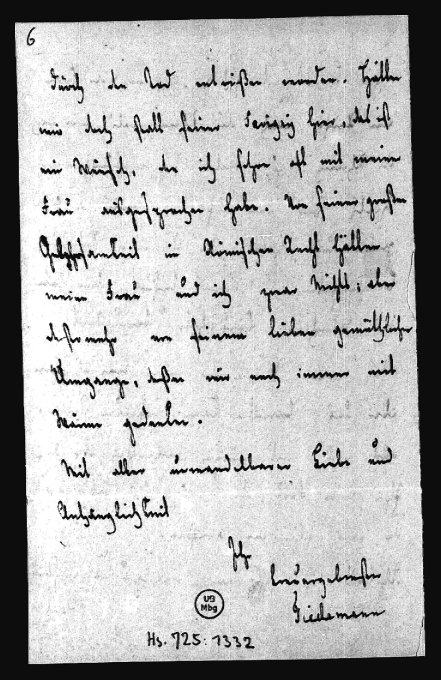 6
durch den Tod entrissen worden. Hätten
wir doch statt seiner Savigny hier, das ist
ein Wunsch, den ich schon oft mit meiner
Frau ausgesprochen habe. Von seiner großen
Gelehrsamkeit im Römischen Recht hätten
meine Frau und ich zwar Nichts; aber
desto mehr von seinem lieben gemüthlichen
Umgange, dessen wir noch immer mit
Wärme gedenken.
Mit aller unwandelbarer Liebe und
Anhänglichkeit
Ihr
treuergebenster
Tiedemann
UB
Mbg
Hs. 725: 1332